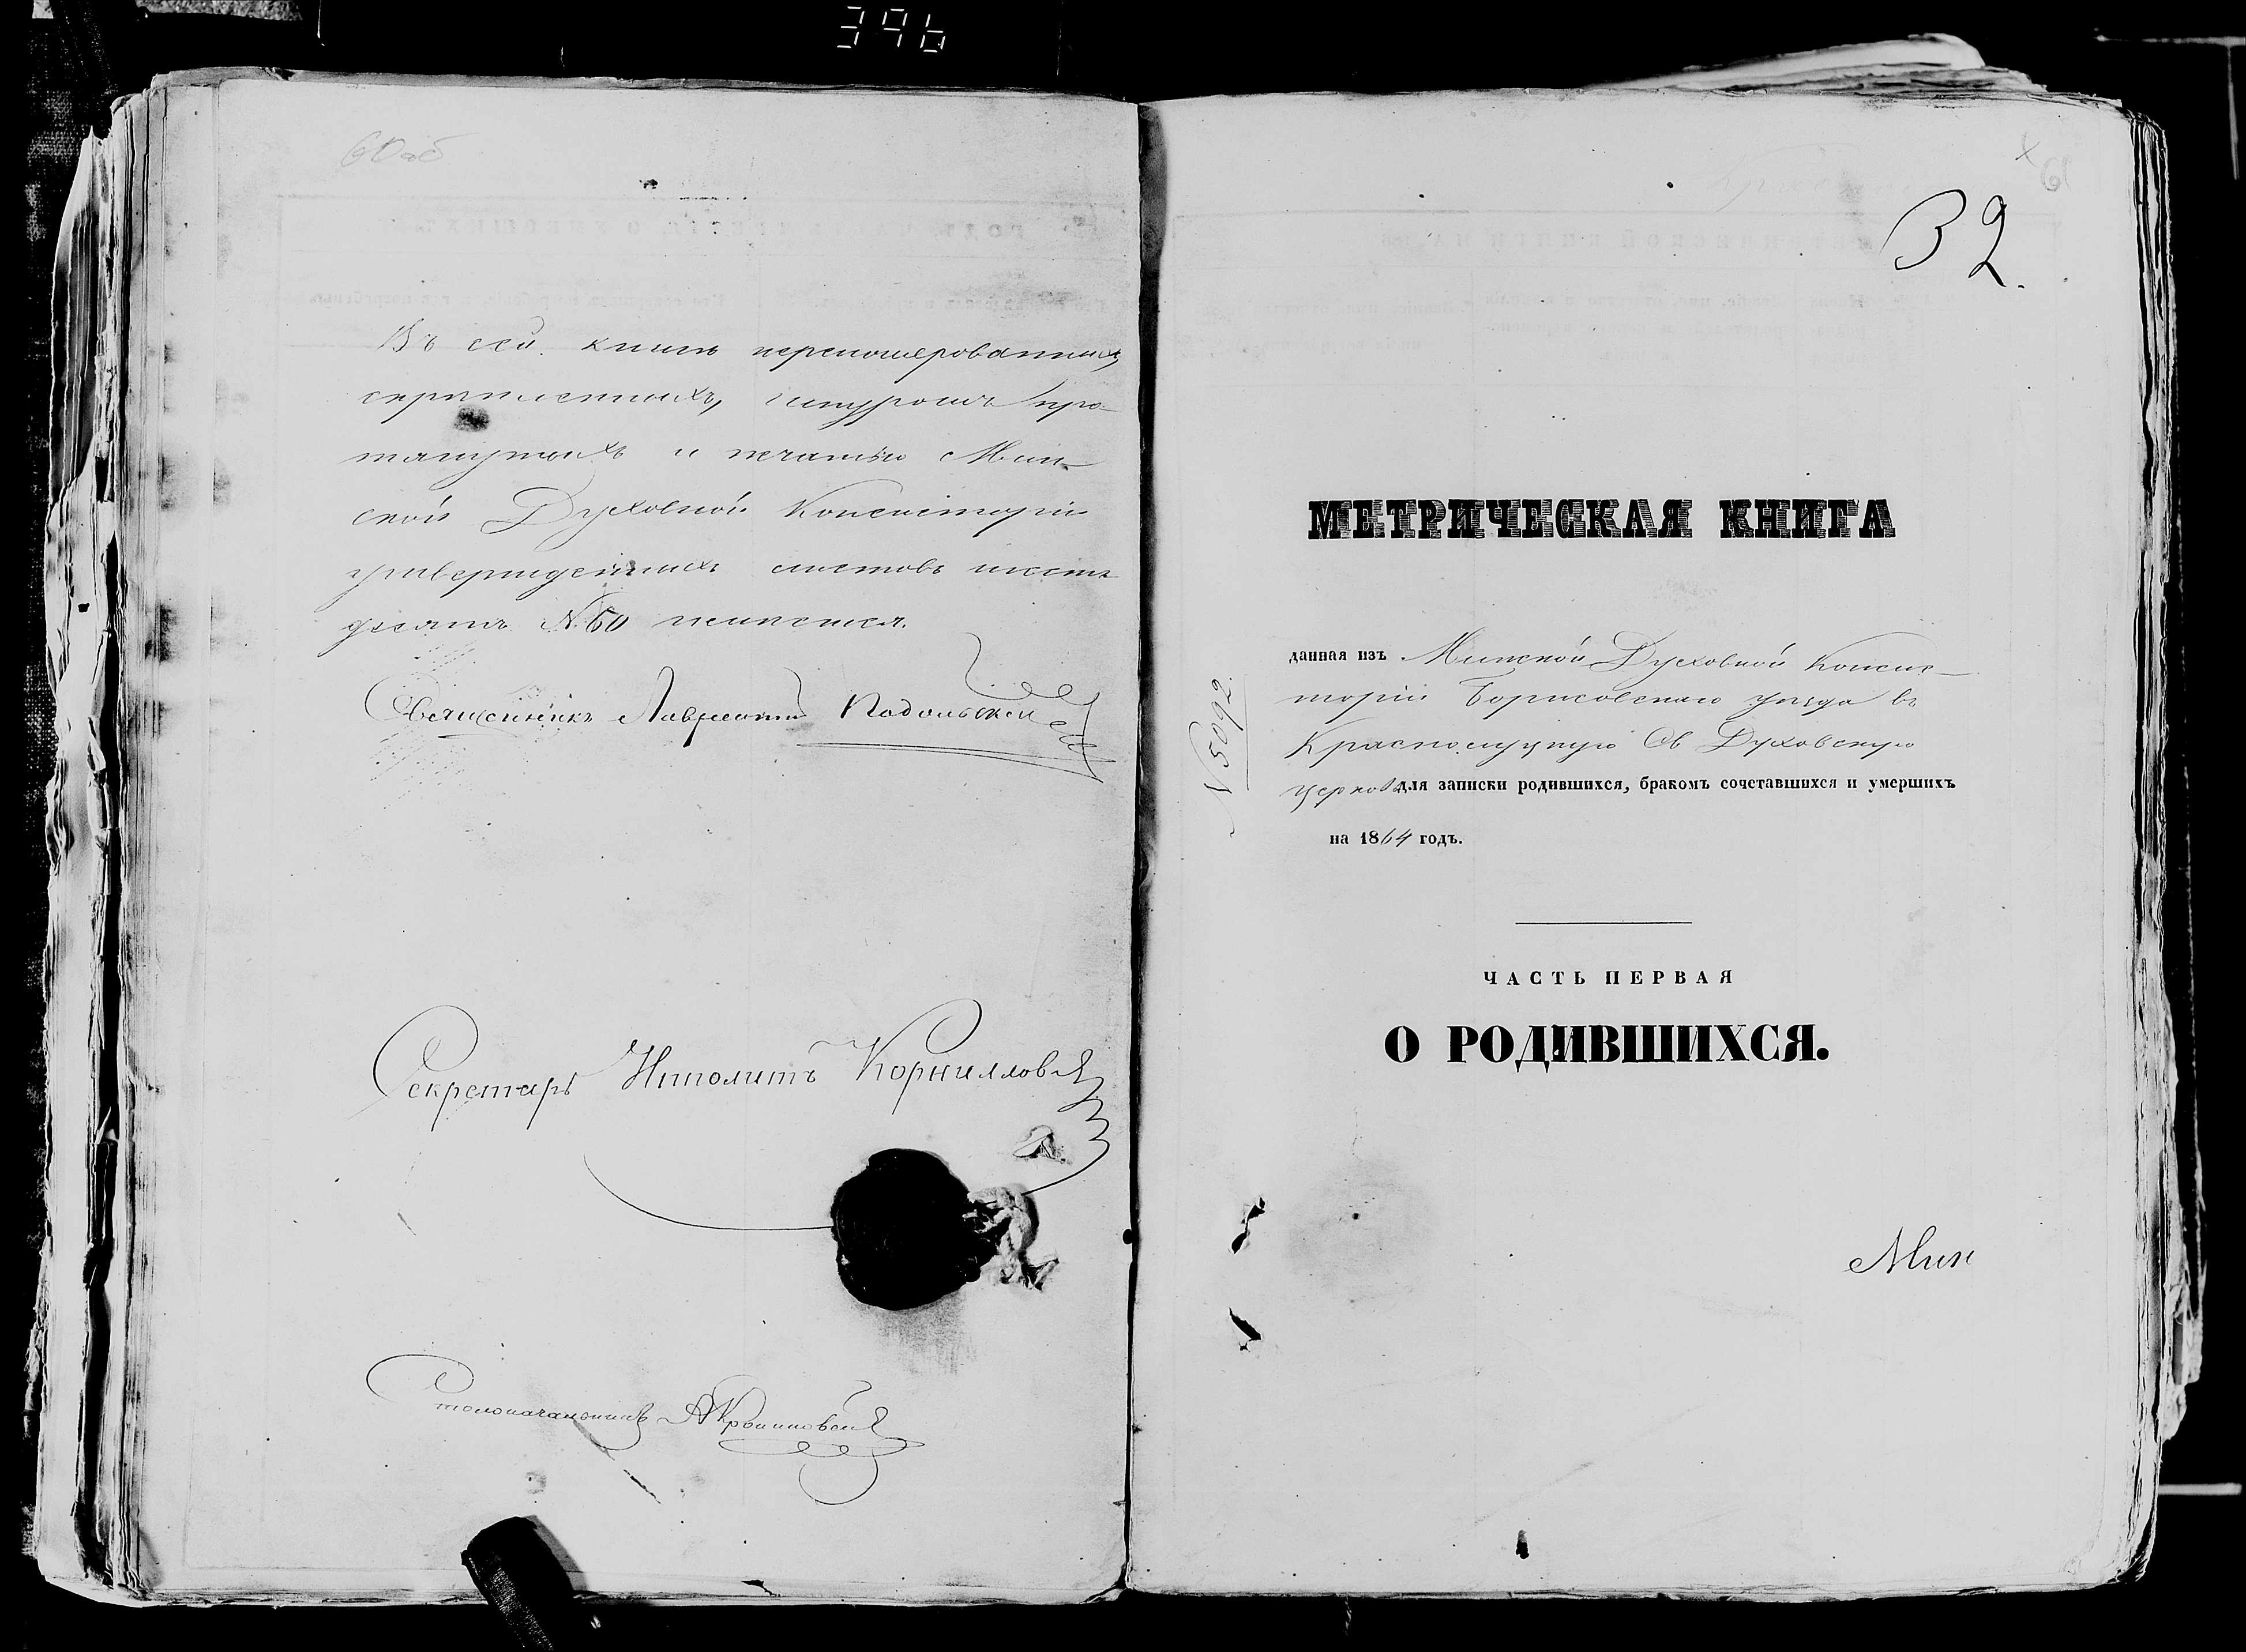 396
60 об
Въ сей книгѣ перенумерованныхъ,
скрѣпленныхъ, шнуромъ про-
тянутыхъ и печатью Мин-
ской Духовной Консисторіи
утвержденныхъ листовъ шесть
десятъ N. 60 имѣется.
Священникъ Лаврентій Подольскій
Секретарь Ипполитъ Корниллов
Столоначальникъ
61
32.
МЕТРИЧЕСКАЯ КНИГА
данная изъ Минской Духовной Консис-
торіи Борисовскаго уѣзда въ
Краснолуцкую Св Духовскую
церковь для записки родившихся, бракомъ сочетавшихся и умершихъ
на 1864 годъ.
N 5092.
ЧАСТЬ ПЕРВАЯ
О РОДИВШИХСЯ.
Мин